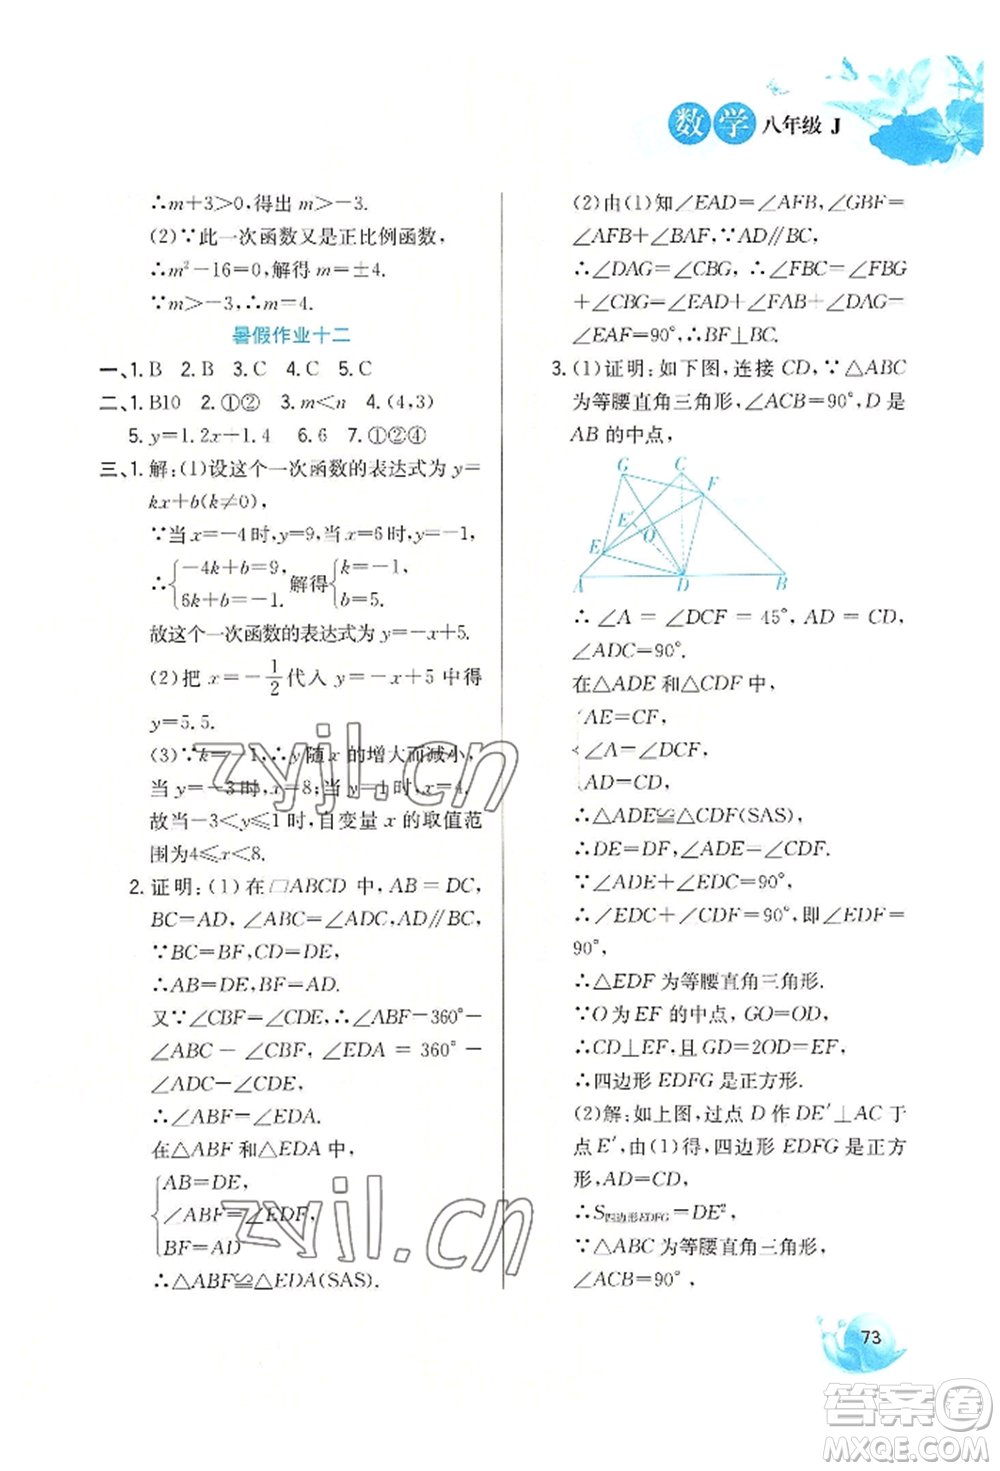 数学 八年级 J
∴m+3>0,得出 m>-3.
(2)∵此一次函数又是正比例函数,
∴m²-16=0,解得 m=±4.
∵m>-3,∴m=4.
暑假作业十二
一、1. B 2. B 3. C 4. C 5. C
二、1. B10 2. ①② 3. m<n 4. (4,3)
5. y=1.2x-1.4 6. 6 7. ①②④
三、1. 解:(1)设这个一次函数的表达式为 y=
kx+b(k≠0),
∵当 x=-4时,y=9,当 x=6时,y=-1,
∴{-4k+b=9, 6k+b=-1, 解得{k=-1, b=5.
故这个一次函数的表达式为 y=-x+5.
(2)把 x=-1/2代入 y=-x+5中得
y=5.5.
(3)∵k=-1,∴y 随 x 的增大而减小,
当 y=-3时,x=8;当 y=1时,x=4.
故当-3<y≤1时,自变量 x 的取值范
围为4≤x<8.
2. 证明:(1)在▱ABCD 中,AB=DC,
BC=AD,∠ABC=∠ADC,AD∥BC,
∵BC=BF,CD=DE,
∴AB=DE,BF=AD.
又∵∠CBF=∠CDE,∴∠ABF=360°-
∠ABC-∠CBF,∠EDA=360°-
∠ADC-∠CDE,
∴∠ABF=∠EDA.
在△ABF 和△EDA 中,
AB=DE,
∠ABF=∠EDF,
BF=AD
∴△ABF≌△EDA(SAS).
(2)由(1)知∠EAD=∠AFB,∠GBF=
∠AFB+∠BAF,∵AD∥BC,
∴∠DAG=∠CBG,∴∠FBG=∠FBC
+∠CBG=∠EAD+∠FAB+∠DAG=
∠EAF=90°,∴BF⊥BC.
3. (1)证明:如下图,连接 CD,∵△ABC
为等腰直角三角形,∠ACB=90°,D 是
AB 的中点,
G C F
E′ O
E
A D B
∴∠A=∠DCF=45°,AD=CD,
∠ADC=90°.
在△ADE 和△CDF 中,
AE=CF,
∠A=∠DCF,
AD=CD,
∴△ADE≌△CDF(SAS)
∴DE=DF,∠ADE=∠CDF,
∵∠ADE+∠EDC=90°,
∴∠EDC+∠CDF=90°,即∠EDF=
90°,
∴△EDF 为等腰直角三角形.
∵O 为 EF 的中点,GO=OD,
∴CD⊥EF,且 GD=2OD=EF,
∴四边形 EDFG 是正方形.
(2)解:如上图,过点 D 作 DE′⊥AC 于
点 E′,由(1)得,四边形 EDFG 是正方
形,AD=CD,
∴S四边形EDFG=DE²,
∵△ABC 为等腰直角三角形,
∠ACB=90°,
73
zyjl.cn
zyjl.cn
答案圈
MXQE.COM